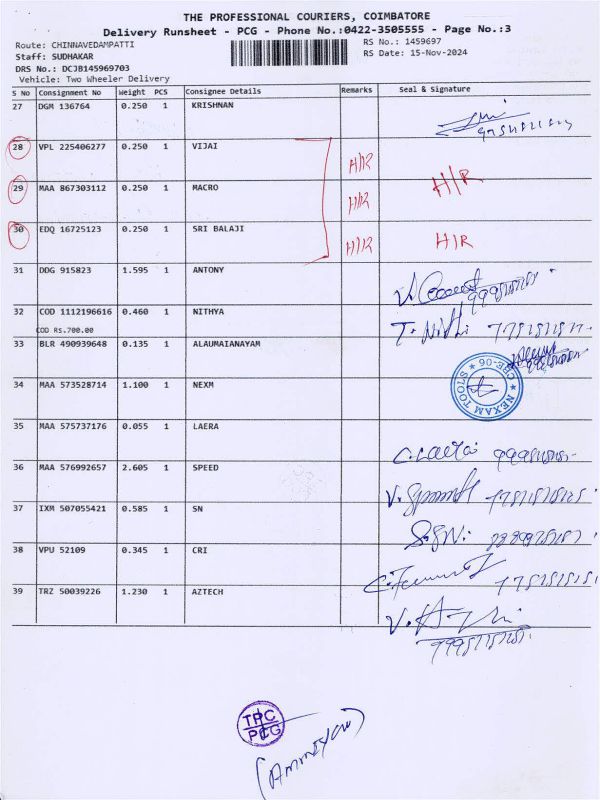 THE PROFESSIONAL COURIERS, COIMBATORE
Delivery Runsheet - PCG - Phone No.:0422-3505555 - Page No.:3
Route: CHINNAVEDAMPATTI RS No.: 1459697
Staff: SUDHAKAR RS Date: 15-Nov-2024
DRS No.: DCJB145969703
Vehicle: Two Wheeler Delivery
S No Consignment No Weight PCS Consignee Details Remarks Seal & Signature
27 DGM 136764 0.250 1 KRISHNAN
28 VPL 225406277 0.250 1 VIJAI H/R
29 MAA 867303112 0.250 1 MACRO H/R H/R
30 EDQ 16725123 0.250 1 SRI BALAJI H/R H/R
31 DDG 915823 1.595 1 ANTONY
32 COD 1112196616 0.460 1 NITHYA T. Nithi
COD Rs.700.00
33 BLR 490939648 0.135 1 ALAUMAIANAYAM
34 MAA 573528714 1.100 1 NEXM
NEXAM TOOLS CBE-06
35 MAA 575737176 0.055 1 LAERA
36 MAA 576992657 2.605 1 SPEED
37 IXM 507055421 0.585 1 SN
38 VPU 52109 0.345 1 CRI
39 TRZ 50039226 1.230 1 AZTECH
TPC
PCG